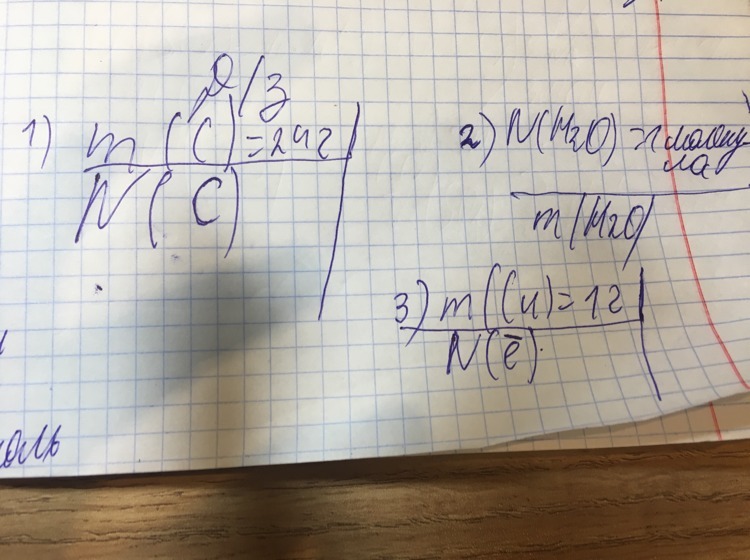 Д/з
1) m (C) = 24г
N (C)
2) N(H2O) = 1 молекула
m(H2O)
3) m(Cu) = 1г
N(ē)
оль